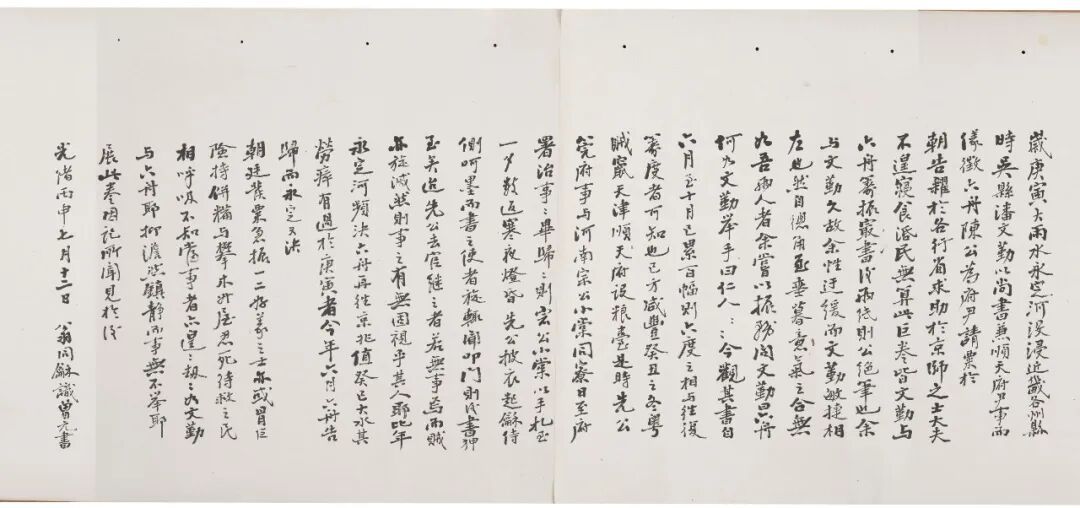 歲庚寅大雨水永定河漫浸近畿各州縣
時吳縣潘文勤以尚書兼順天府尹事而
儀徵六舟陳公為府尹請粟於
朝告糶於各行省求助於京師之士大夫
不遑寢食活民無算此巨卷皆文勤與
六舟籌振叢書後兩紙則公絕筆也余
與文勤久故余性迂緩而文勤敏捷相
左也然自總角至垂暮意氣之合無
如吾兩人者余嘗以振務問文勤曰六舟
何如文勤舉手曰仁人仁人今觀其書自
六月至十月已累百幅則六舟之相與往復
籌度者可知也已方咸豐癸丑之冬粵
賊竄天津順天府設糧臺是時先公
筦府事與河南宗公小棠同寮日至府
署治事事畢歸歸則宗公小棠以手札至
一夕數返寒夜燈昏先公披衣起龢侍
側呵墨而書之使者聲輒聞叩門則此書狎
至矣迨先公去官繼之者若無事焉而賊
亦旋滅然則事之有無固視乎其人耶比年
永定河頻決六舟再往京兆值癸巳大水其
勞瘁有過於庚寅者今年六月六舟告
歸而永定又決
朝廷發粟急振一二好義之士亦或冒巨
險持餅糒與攀木升屋忍死待救之民
相呼吸不知當事者亦遑遑汲汲如文勤
與六舟耶抑澹然鎮靜而事無不舉耶
展此卷因記所聞見於後
光緒丙申七月十三日 翁同龢識曾元書